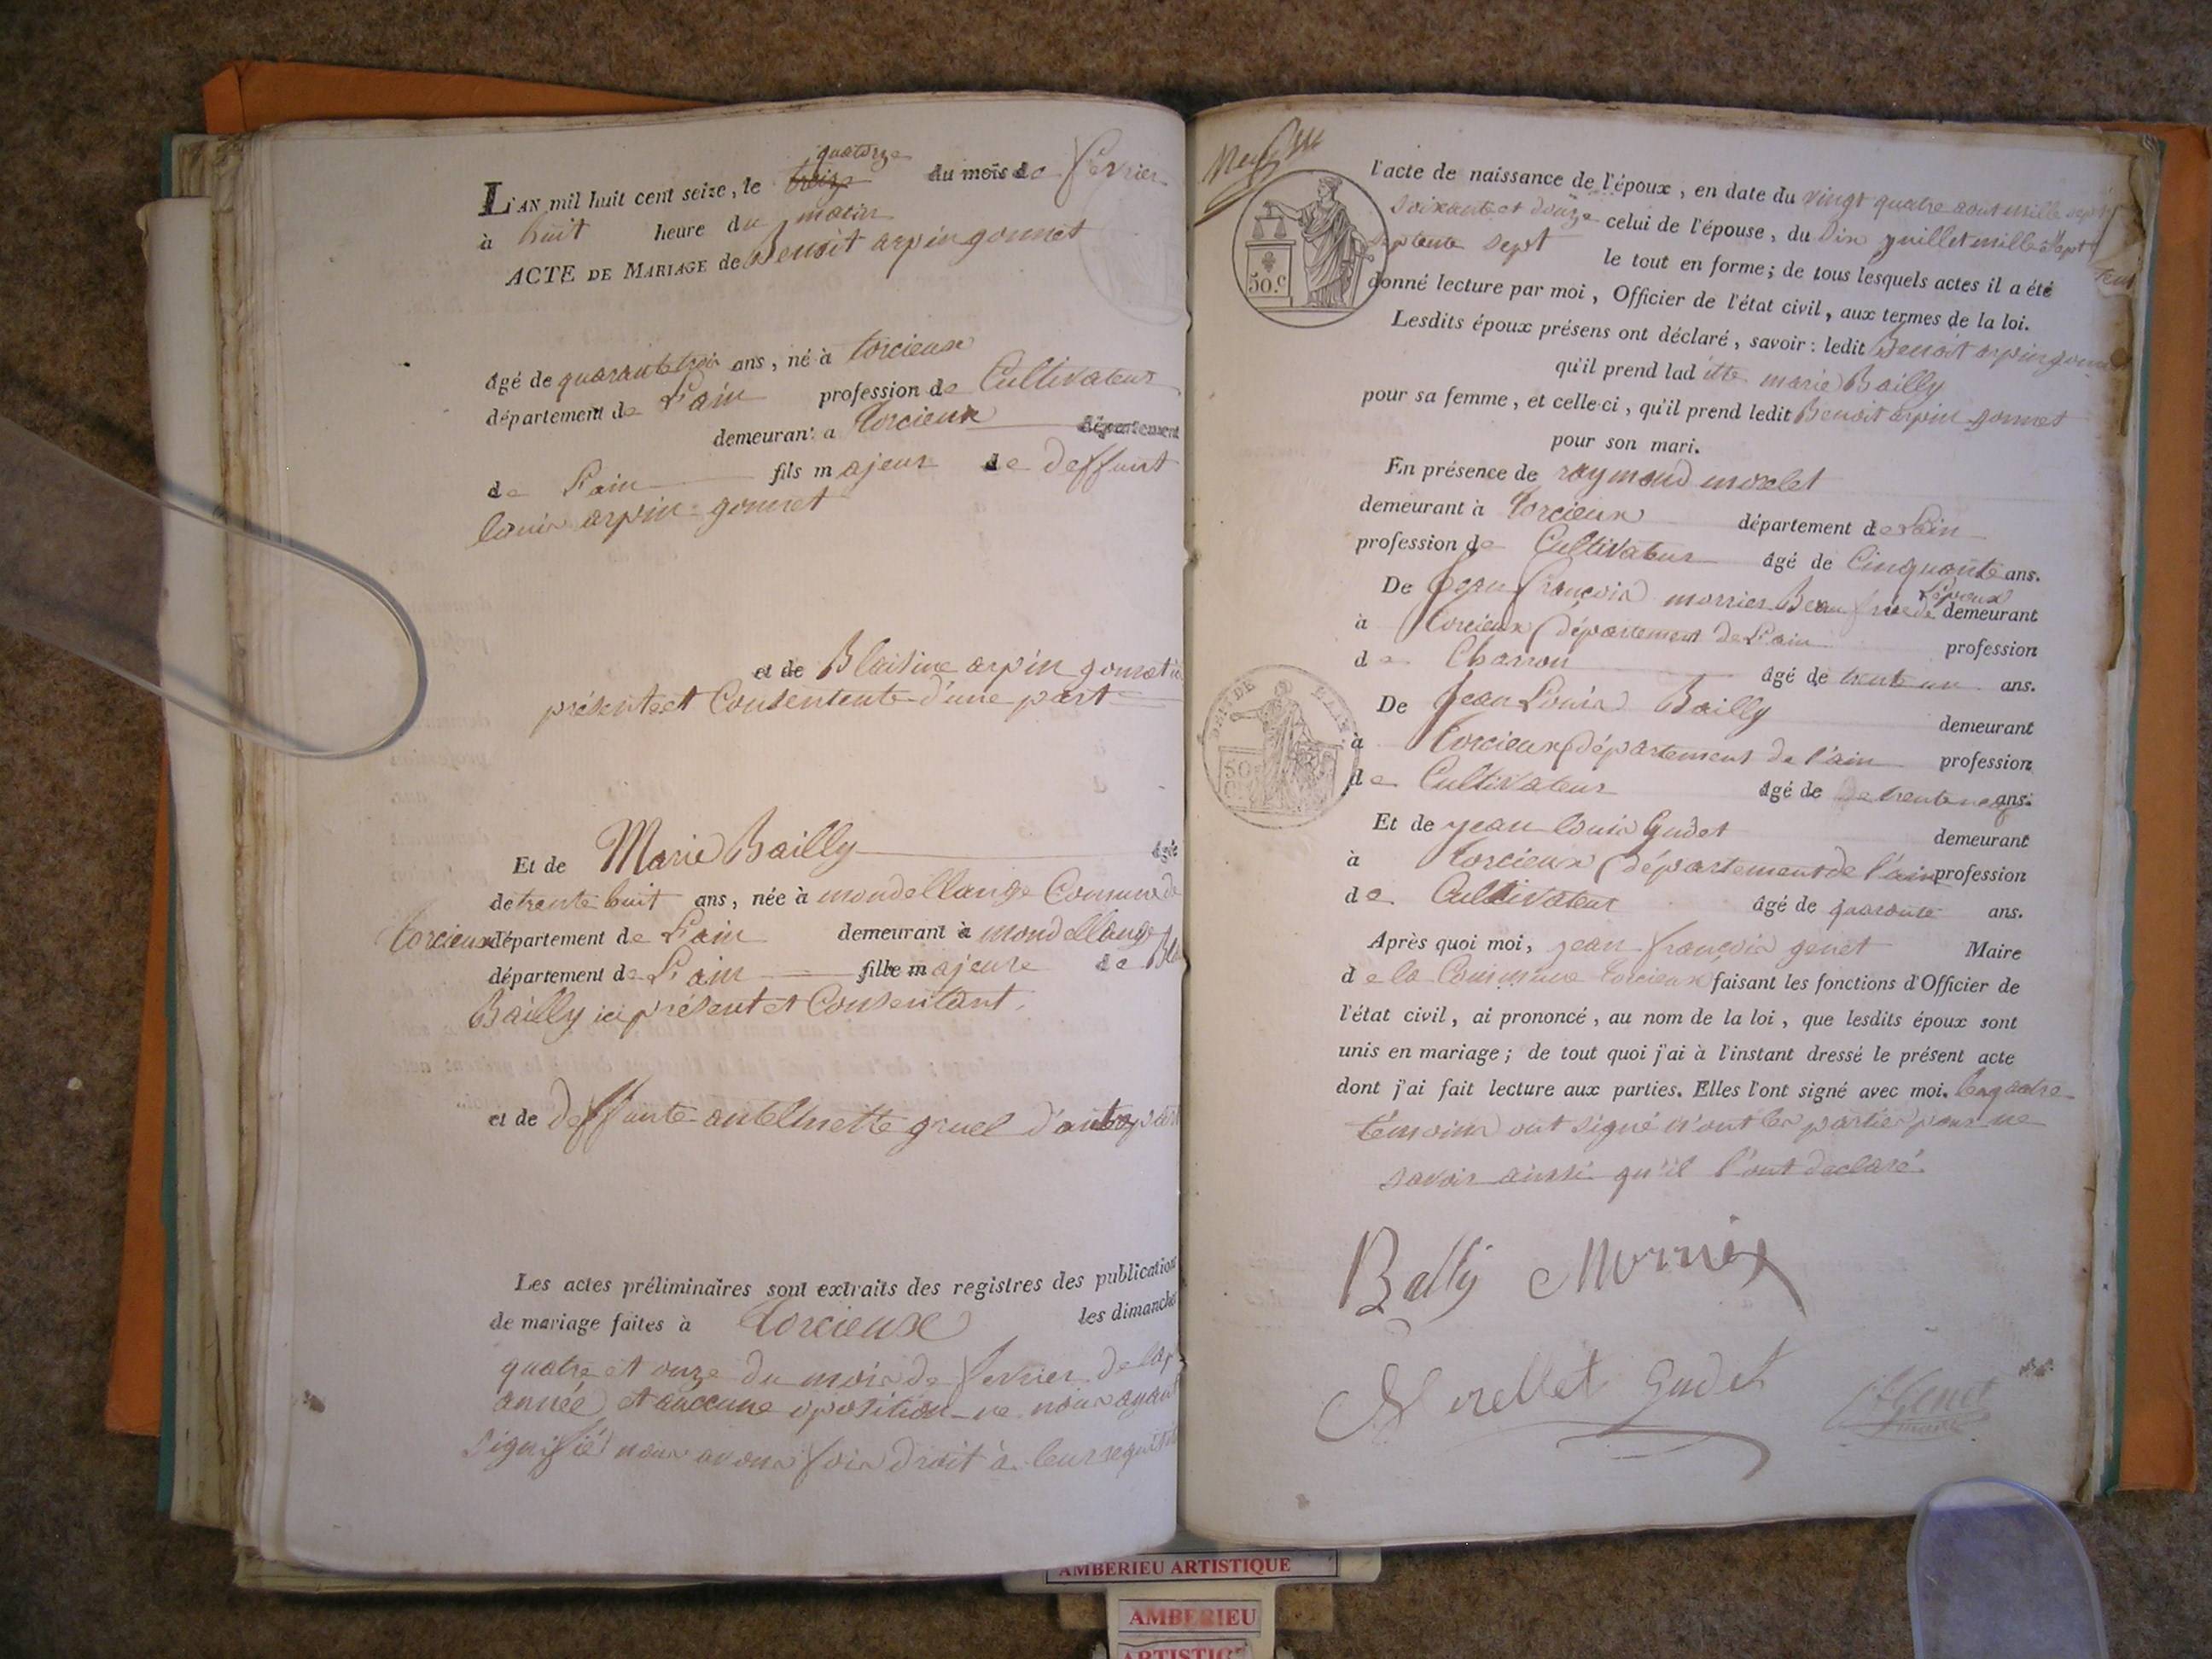 L'AN mil huit cent seize, le treize quatorze du mois de fevrier
à huit heure du matin
ACTE DE MARIAGE de Benoit arpin gonnet
âgé de quarante trois ans, né à torcieux
département de L'ain profession de Cultivateur
demeurant à torcieux département
de L'ain fils majeur de deffunt
louis arpin gonnet
et de Blaisine arpin gonnet
présente et Consentente d'une part
Et de Marie Bailly âgée
de trente huit ans, née à mondellange Commune de
torcieux département de L'ain demeurant à mondellange
département de L'ain fille majeure de
Bailly ici présent et Consentant.
et de deffunte antelmette gruel d'autre part
Les actes préliminaires sont extraits des registres des publications
de mariage faites à torcieux les dimanches
quatre et onze du mois de fevrier de
année et auccune oposition ne nous ayant
signifié nous avons fais droit à leur
l'acte de naissance de l'époux, en date du vingt quatre aout mille sept
soixante et douze celui de l'épouse, du dix juillet mille sept cent
septente sept le tout en forme; de tous lesquels actes il a été
donné lecture par moi, Officier de l'état civil, aux termes de la loi.
50.c
Lesdits époux présens ont déclaré, savoir: ledit Benoit arpin gonnet
qu'il prend laditte marie Bailly
pour sa femme, et celle-ci, qu'il prend ledit Benoit arpin gonnet
pour son mari.
En présence de raymond morelet
demeurant à torcieux département de L'ain
profession de Cultivateur âgé de Cinquante ans.
De jean françois morrier Beau frere de L'époux demeurant
à torcieux département de L'ain profession
de Charron âgé de trente un ans.
De jean Louis Bailly demeurant
à torcieux département de l'ain profession
de Cultivateur âgé de de trente neuf ans.
Et de jean louis Gudet demeurant
à torcieux département de l'ain profession
de Cultivateur âgé de quarante ans.
Après quoi moi, jean françois genet Maire
de la Commune torcieux faisant les fonctions d'Officier de
l'état civil, ai prononcé, au nom de la loi, que lesdits époux sont
unis en mariage; de tout quoi j'ai à l'instant dressé le présent acte
dont j'ai fait lecture aux parties. Elles l'ont signé avec moi. les quatre
témoins ont signé n'ont les parties pour ne
savoir ainsi qu'il l'ont declaré.
Bally Morrier
Morellet Gudet Genet
maire
AMBERIEU ARTISTIQUE
AMBERIEU
ARTISTIQ